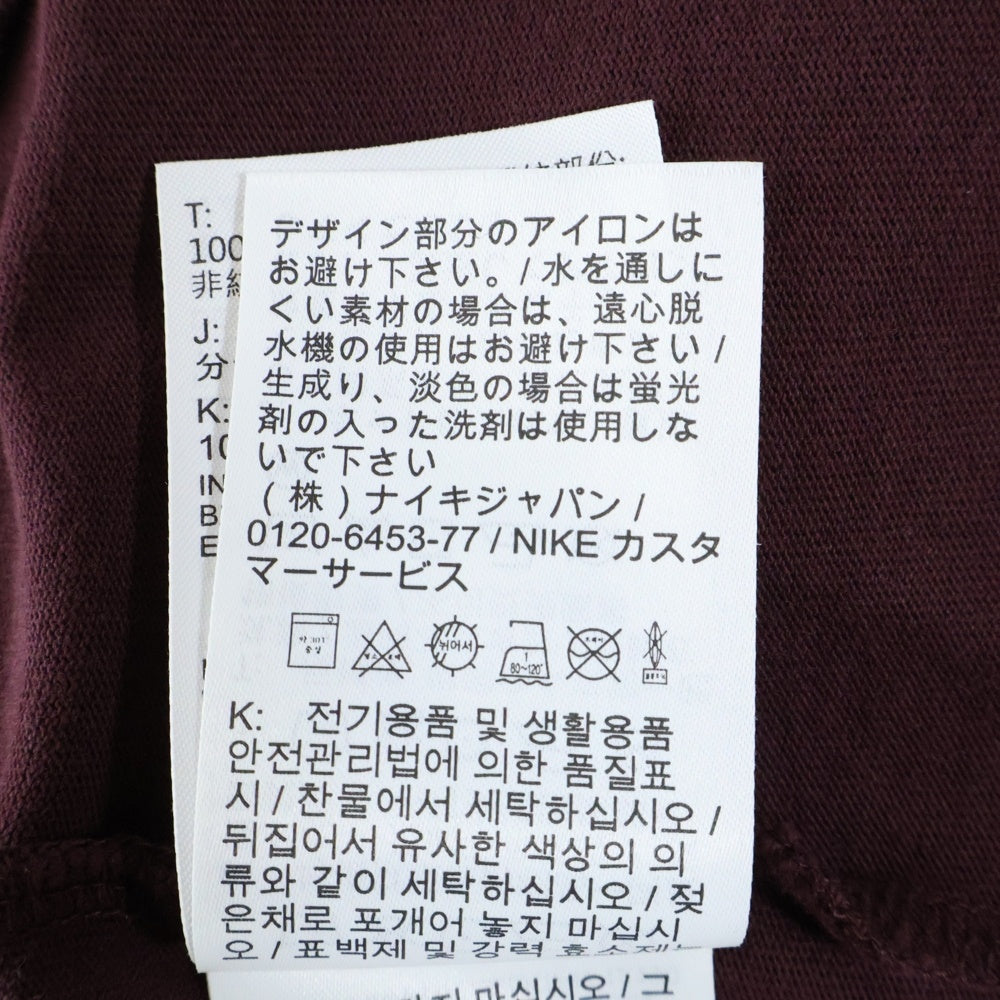 T:
100
非
J:
分
K:
10
IN
B
E
デザイン部分のアイロンは
お避け下さい。/ 水を通しに
くい素材の場合は、遠心脱
水機の使用はお避け下さい /
生成り、淡色の場合は蛍光
剤の入った洗剤は使用しな
いで下さい
(株)ナイキジャパン /
0120-6453-77 / NIKE カスタ
マーサービス
뉘어서
80~120°
K: 전기용품 및 생활용품
안전관리법에 의한 품질표
시 / 찬물에서 세탁하십시오 /
뒤집어서 유사한 색상의 의
류와 같이 세탁하십시오 / 젖
은채로 포개어 놓지 마십시
오 / 표백제 및 강력
마십시오 / 그